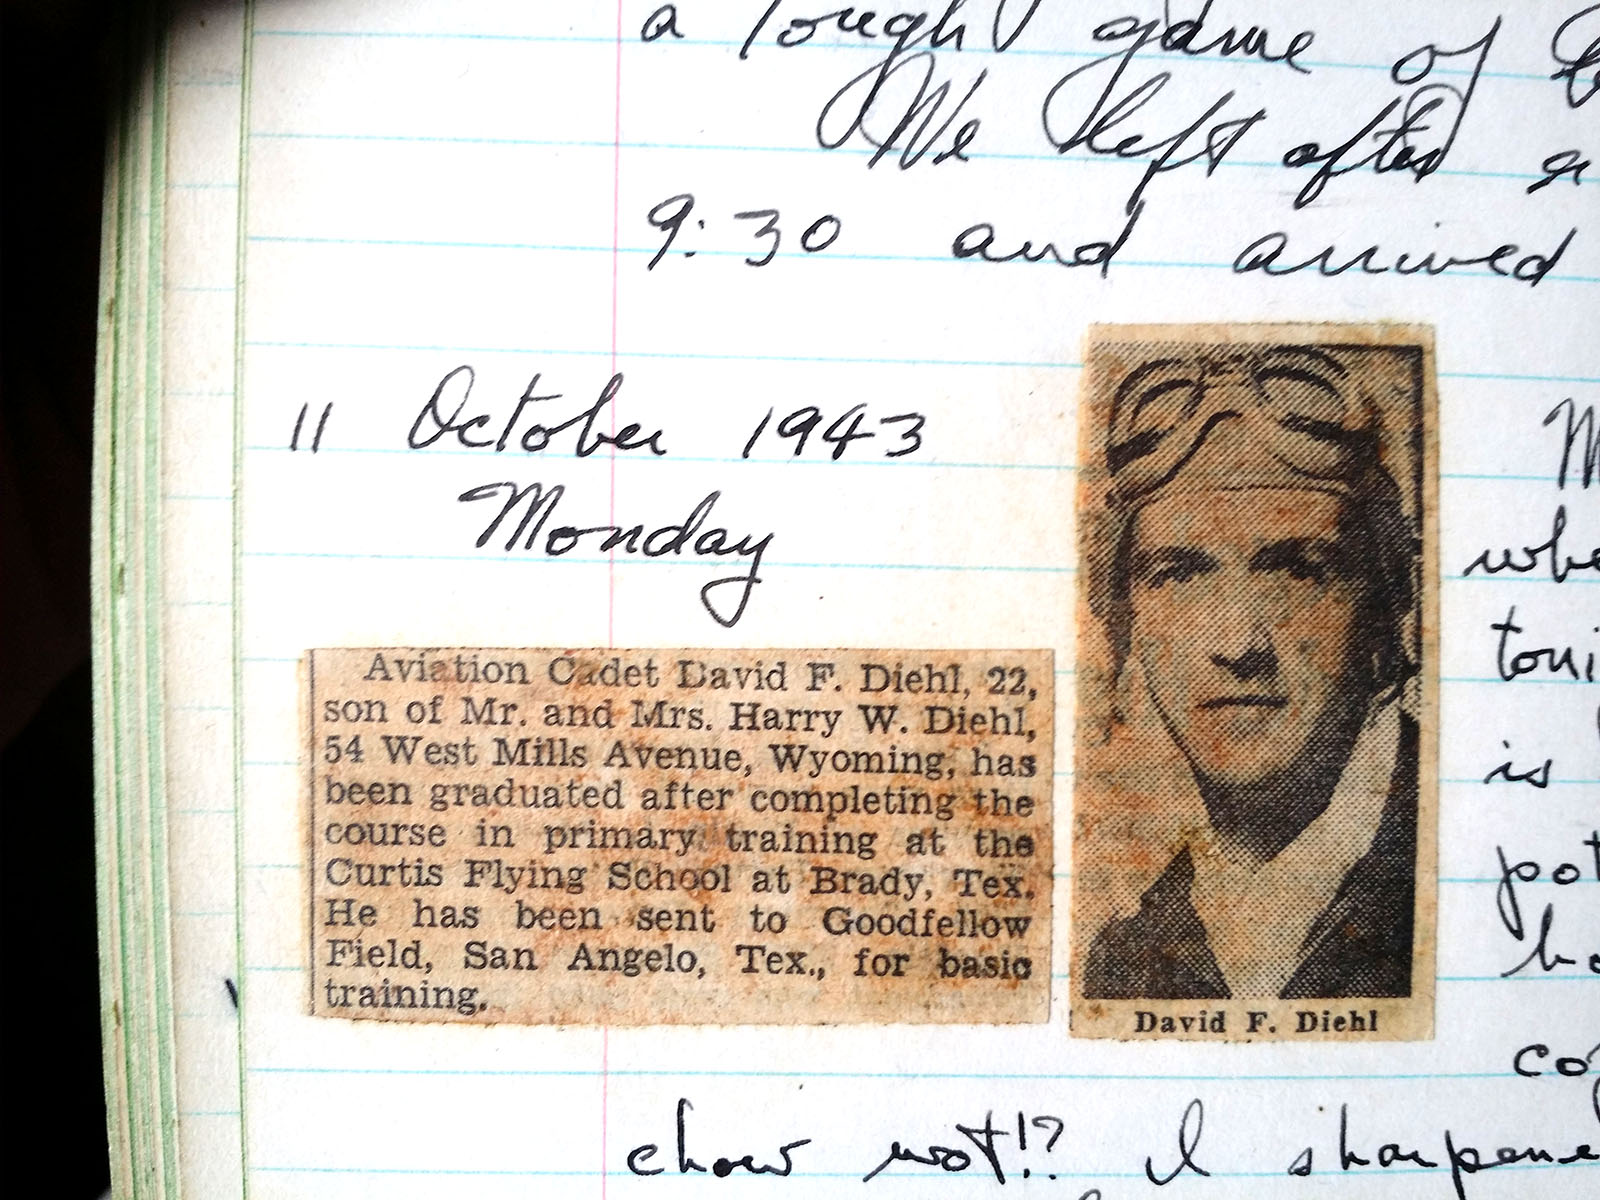 a tough game of
We left after
9:30 and arrived
11 October 1943
Monday
Aviation Cadet David F. Diehl, 22,
son of Mr. and Mrs. Harry W. Diehl,
54 West Mills Avenue, Wyoming, has
been graduated after completing the
course in primary training at the
Curtis Flying School at Brady, Tex.
He has been sent to Goodfellow
Field, San Angelo, Tex., for basic
training.
David F. Diehl
is
chow not!? I sharpene